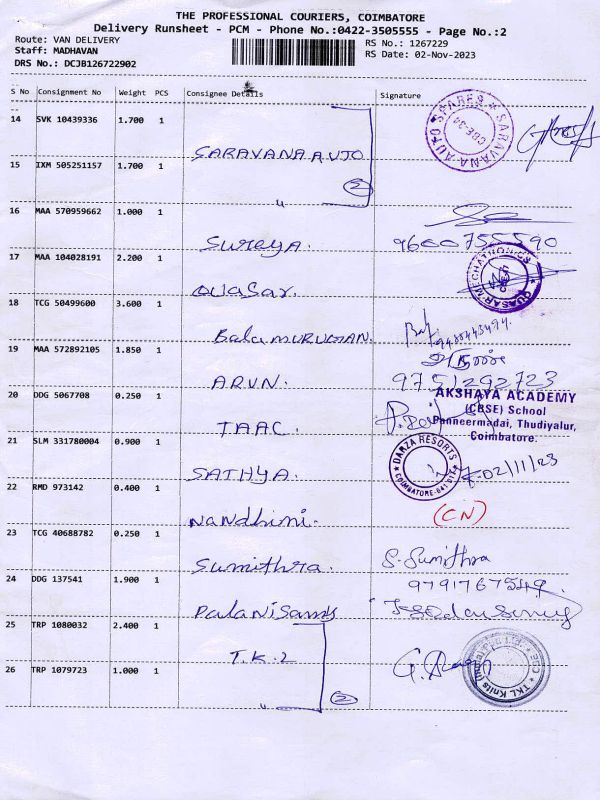 THE PROFESSIONAL COURIERS, COIMBATORE
Delivery Runsheet - PCM - Phone No.:0422-3505555 - Page No.:2
Route: VAN DELIVERY
Staff: MADHAVAN
DRS No.: DCJB126722902
RS No.: 1267229
RS Date: 02-Nov-2023
S No Consignment No Weight PCS Consignee Details Signature
14 SVK 10439336 1.700 1
SARAVANA AUTO
SARAVANA AUTO SPARES
CBE-34
15 IXM 505251157 1.700 1
" 2
16 MAA 570959662 1.000 1
Sureya. 9600755590
17 MAA 104028191 2.200 1
Quasar.
QUASAR MECHATRONICS
18 TCG 50499600 3.600 1
Balamurugan.
19 MAA 572892105 1.850 1
ARUN. 9751292723
20 DDG 5067708 0.250 1
TAAC.
AKSHAYA ACADEMY
(CBSE) School
Panneermadai, Thudiyalur,
Coimbatore.
21 SLM 331780004 0.900 1
SATHYA.
DANZA RESORTS
02/11/23
22 RMD 973142 0.400 1
Nandhini. (CN)
23 TCG 40688782 0.250 1
Sumithra. S. Sumithra
9791767549.
24 DDG 137541 1.900 1
Palanisamy
25 TRP 1080032 2.400 1
T.K.L
26 TRP 1079723 1.000 1
" 2
TKL Knits (India) Pvt Ltd
CBE